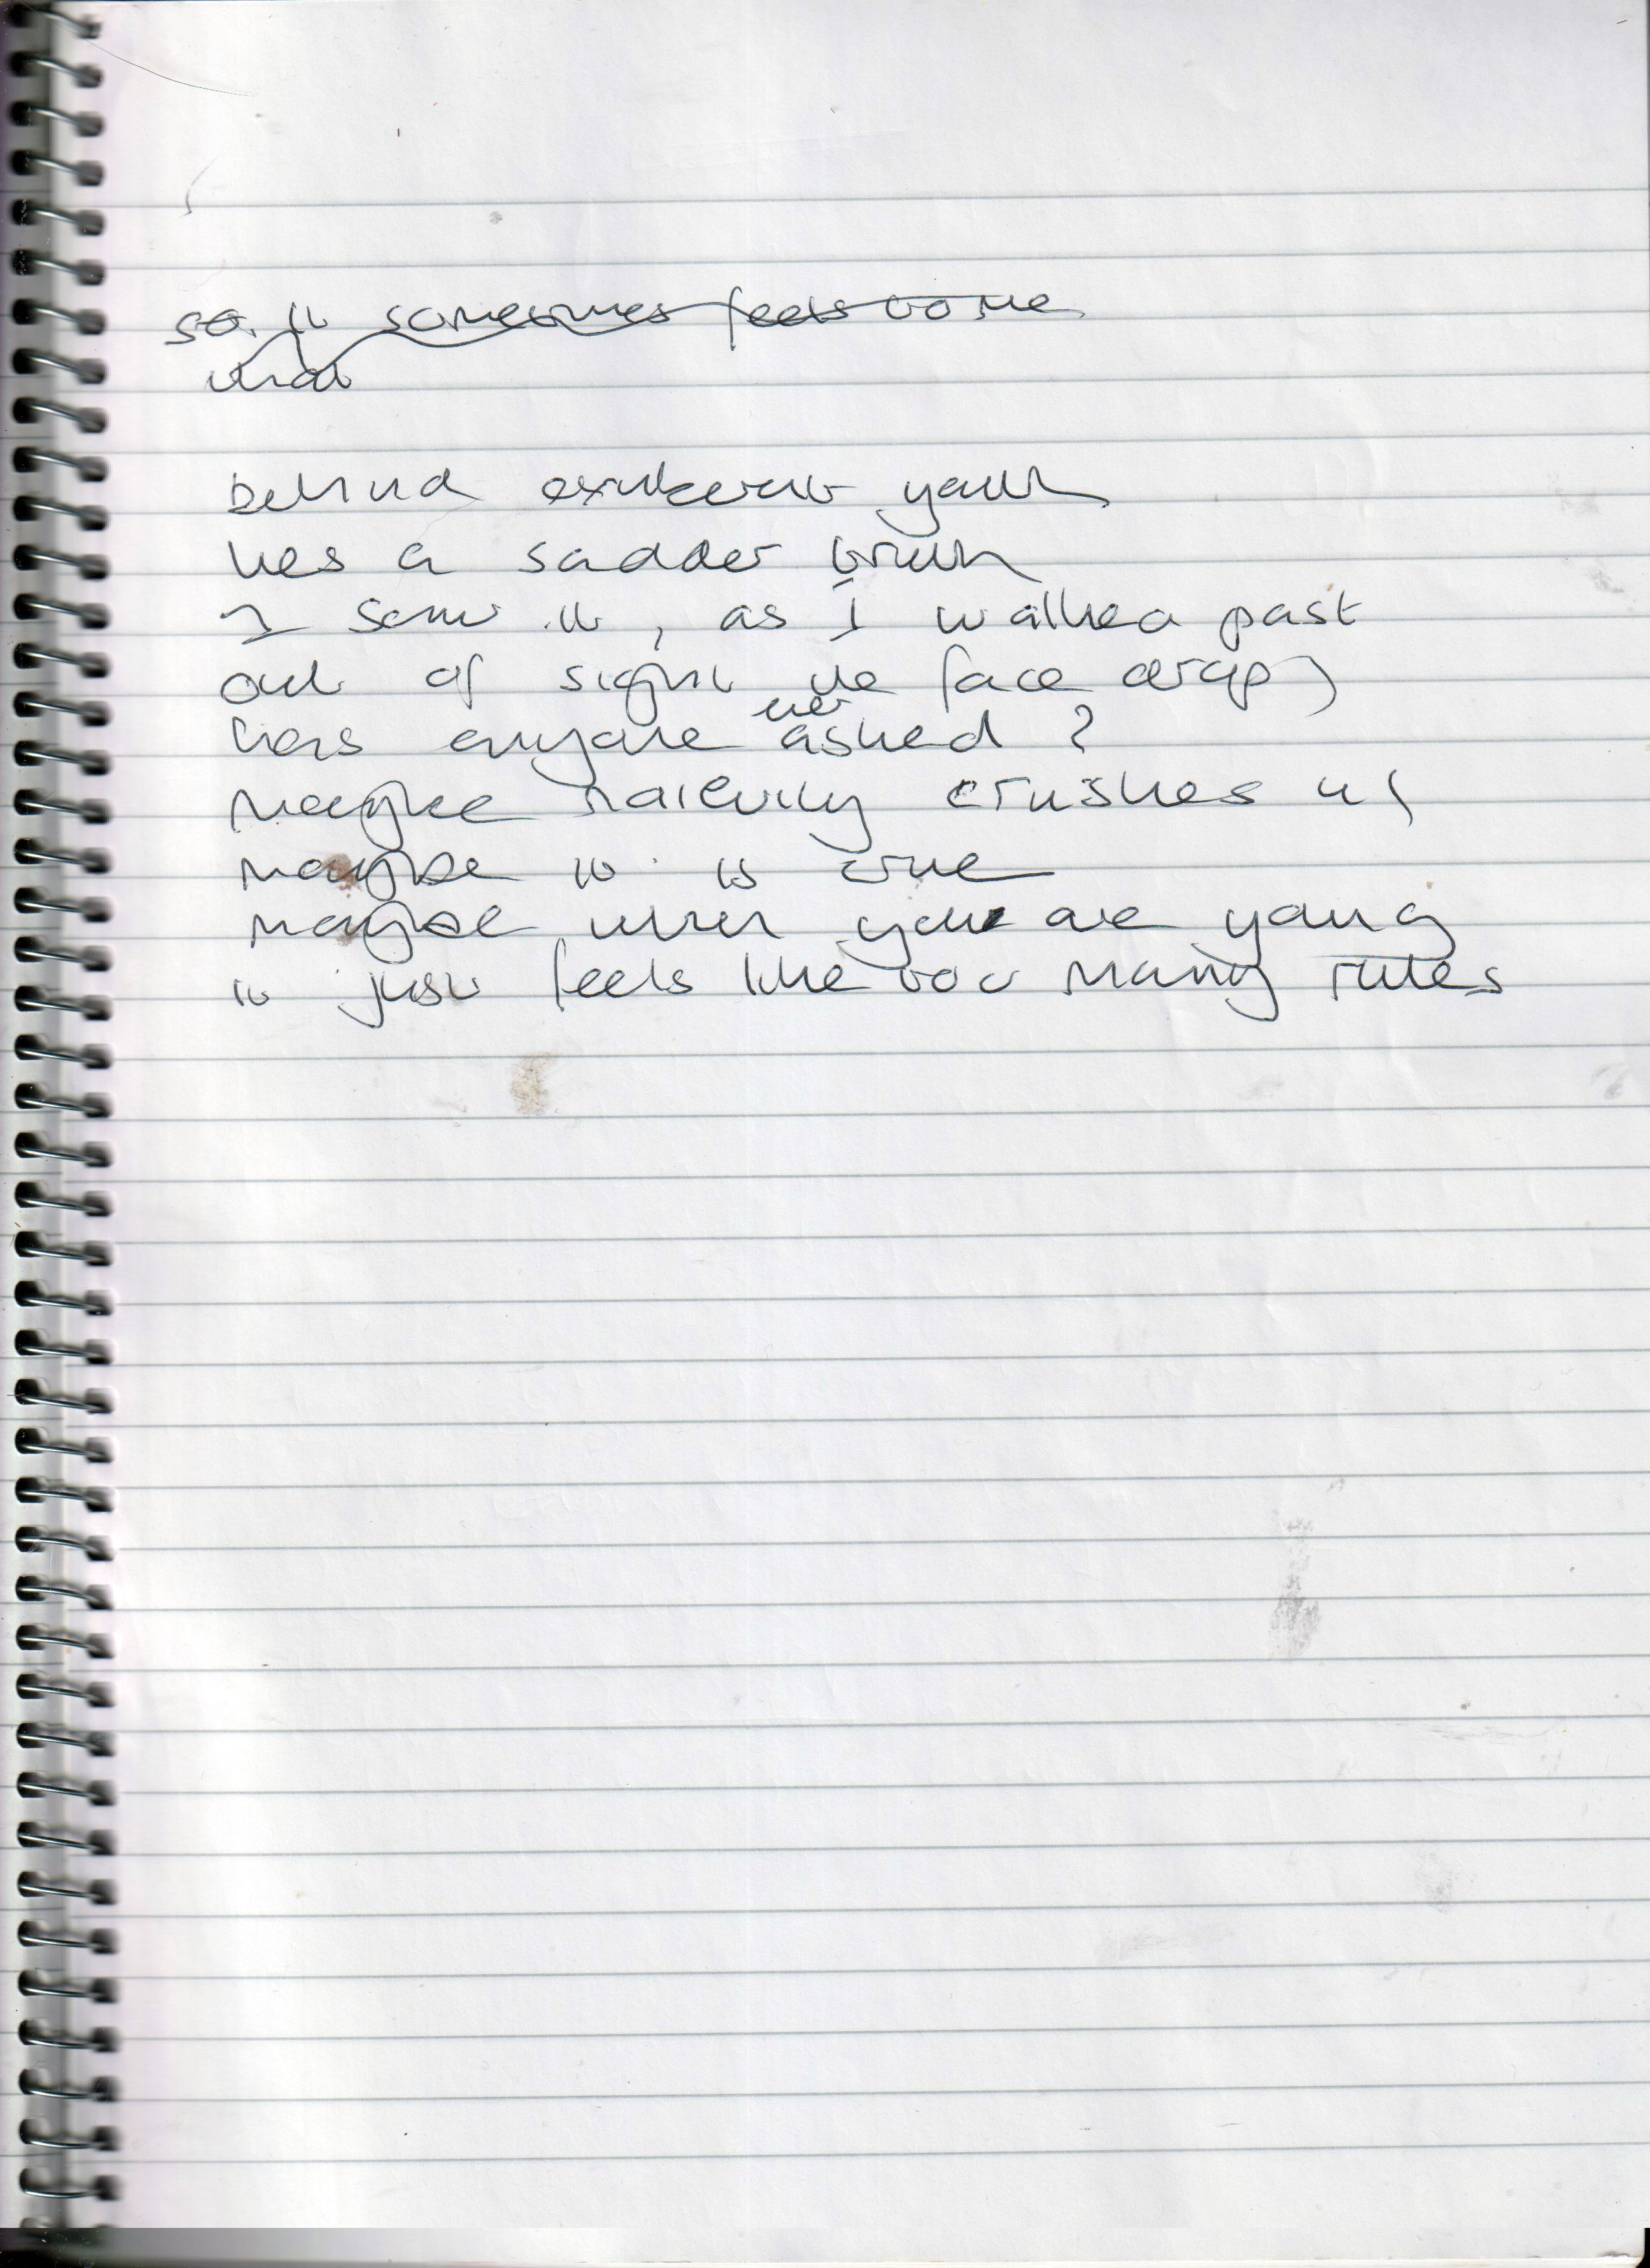 so. it sometimes feels to me
that
behind exuberant youth
lies a sadder truth
I saw it, as I walked past
out of sight the face drops
has anyone ever asked?
maybe naievity crushes us
maybe it is true
maybe when you are young
it just feels like too many rules